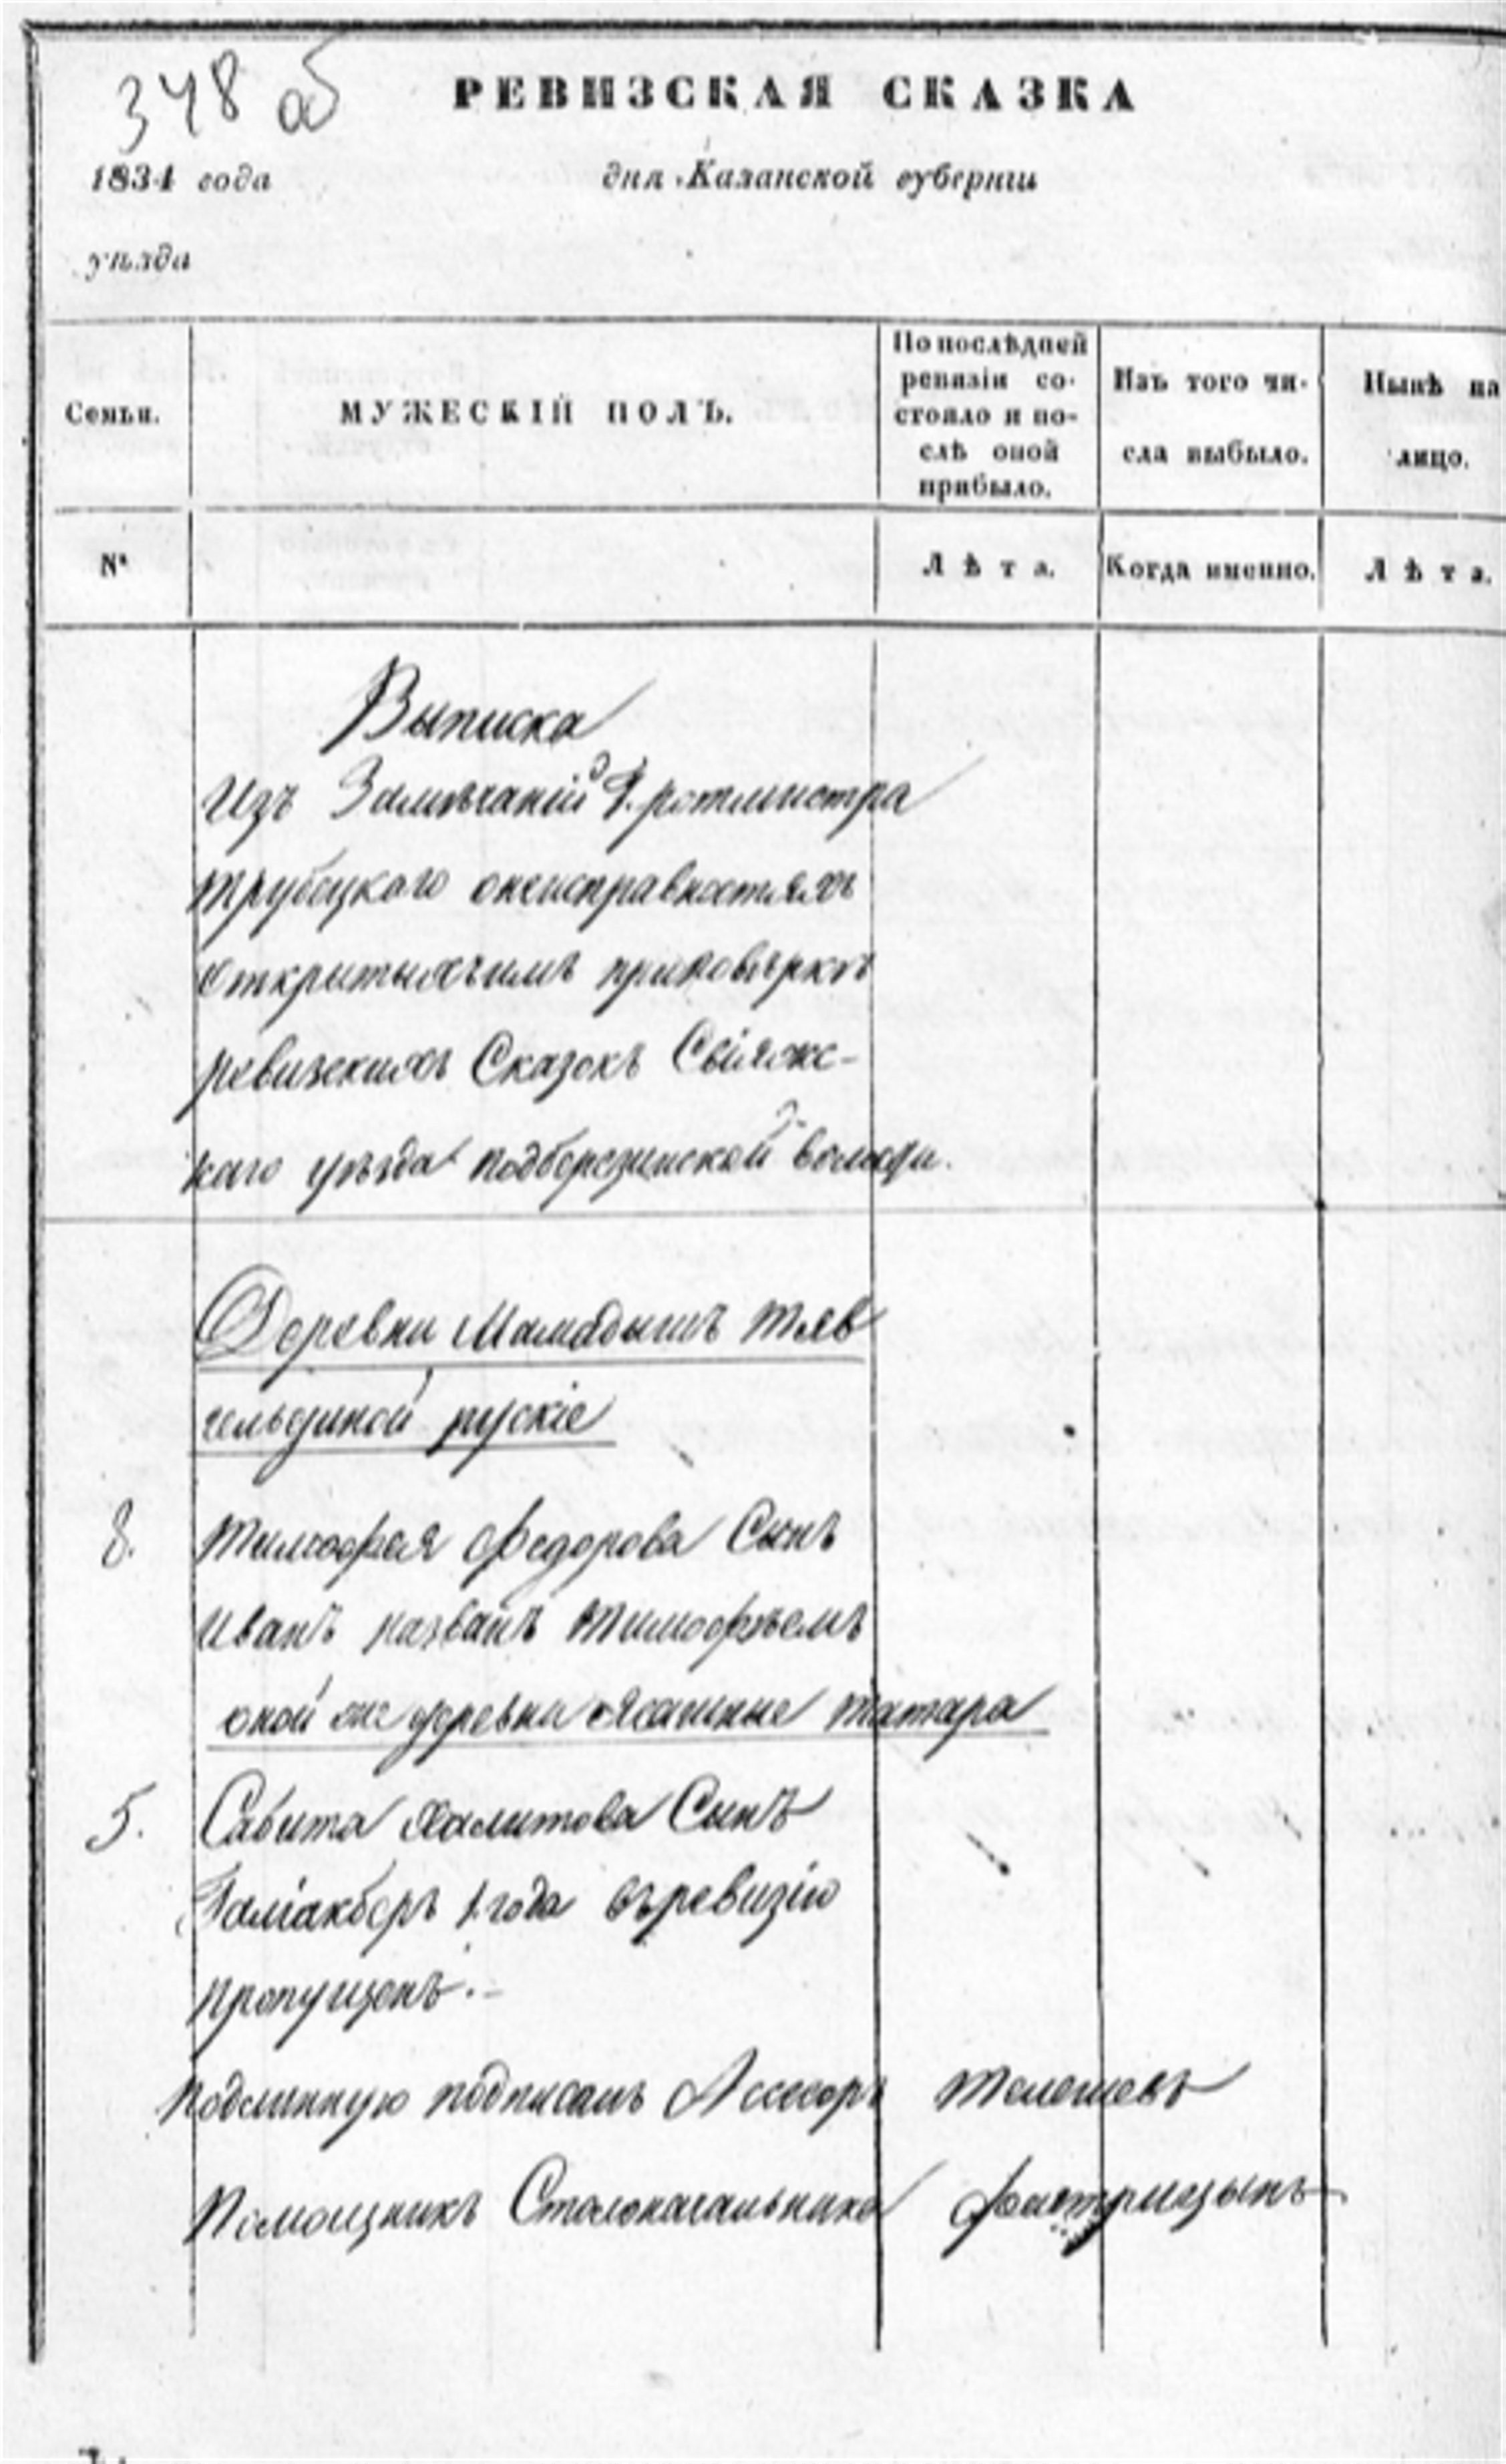 348 об
РЕВИЗСКАЯ СКАЗКА
1834 года дня Казанской губернiи
уѣзда
Семьи. МУЖЕСКIЙ ПОЛЪ. По послѣдней ревизiи состояло и послѣ оной прибыло. Изъ того числа выбыло. Нынѣ на лицо.
№ Лѣта. Когда именно. Лѣта.
Выписка
Изъ Замѣчанiй Г. ротмистра
Трубецкаго онеисправностяхъ
открытыхъимъ приповѣркѣ
ревизскихъ Сказокъ Свiяжс-
каго уѣзда подберезинской волости.
Деревни Мамадышъ Тяв
гельдиной рускiе
8. Тимофея Федорова Сынъ
Иванъ названъ Тимофѣемъ
оной же деревни Ясашные татара
5. Сабита Халитова Сынъ
Галiакберъ 1 года въревизiю
пропущенъ.-
Подлинную подписалъ Ассесоръ
Помощникъ Столоначальника